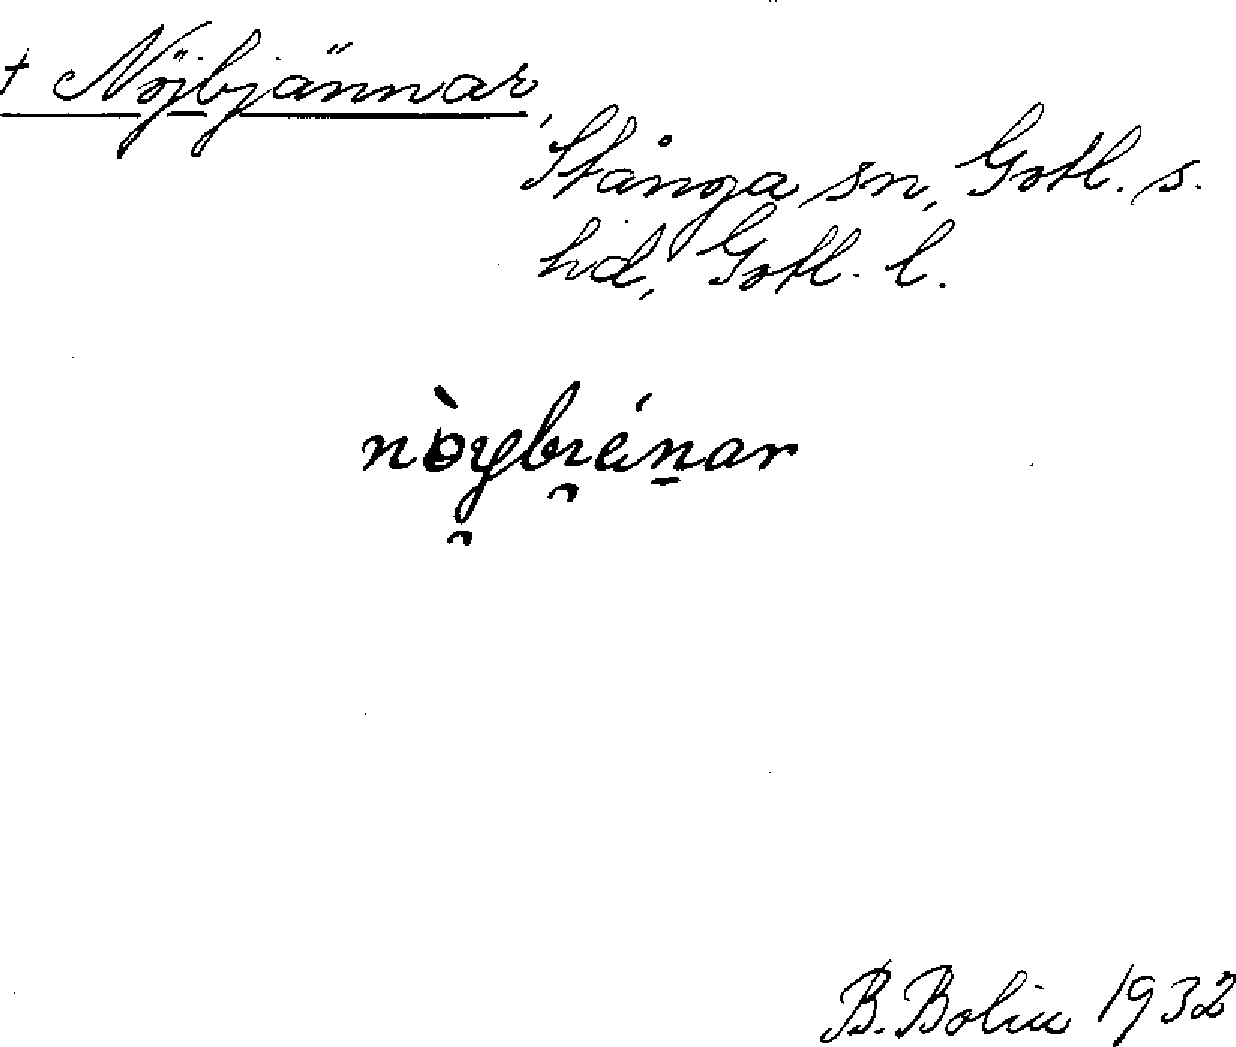 + Nöjbjännar,
Stånga sn, Gotl. s.
hd, Gotl. l.
B. Bolin 1932